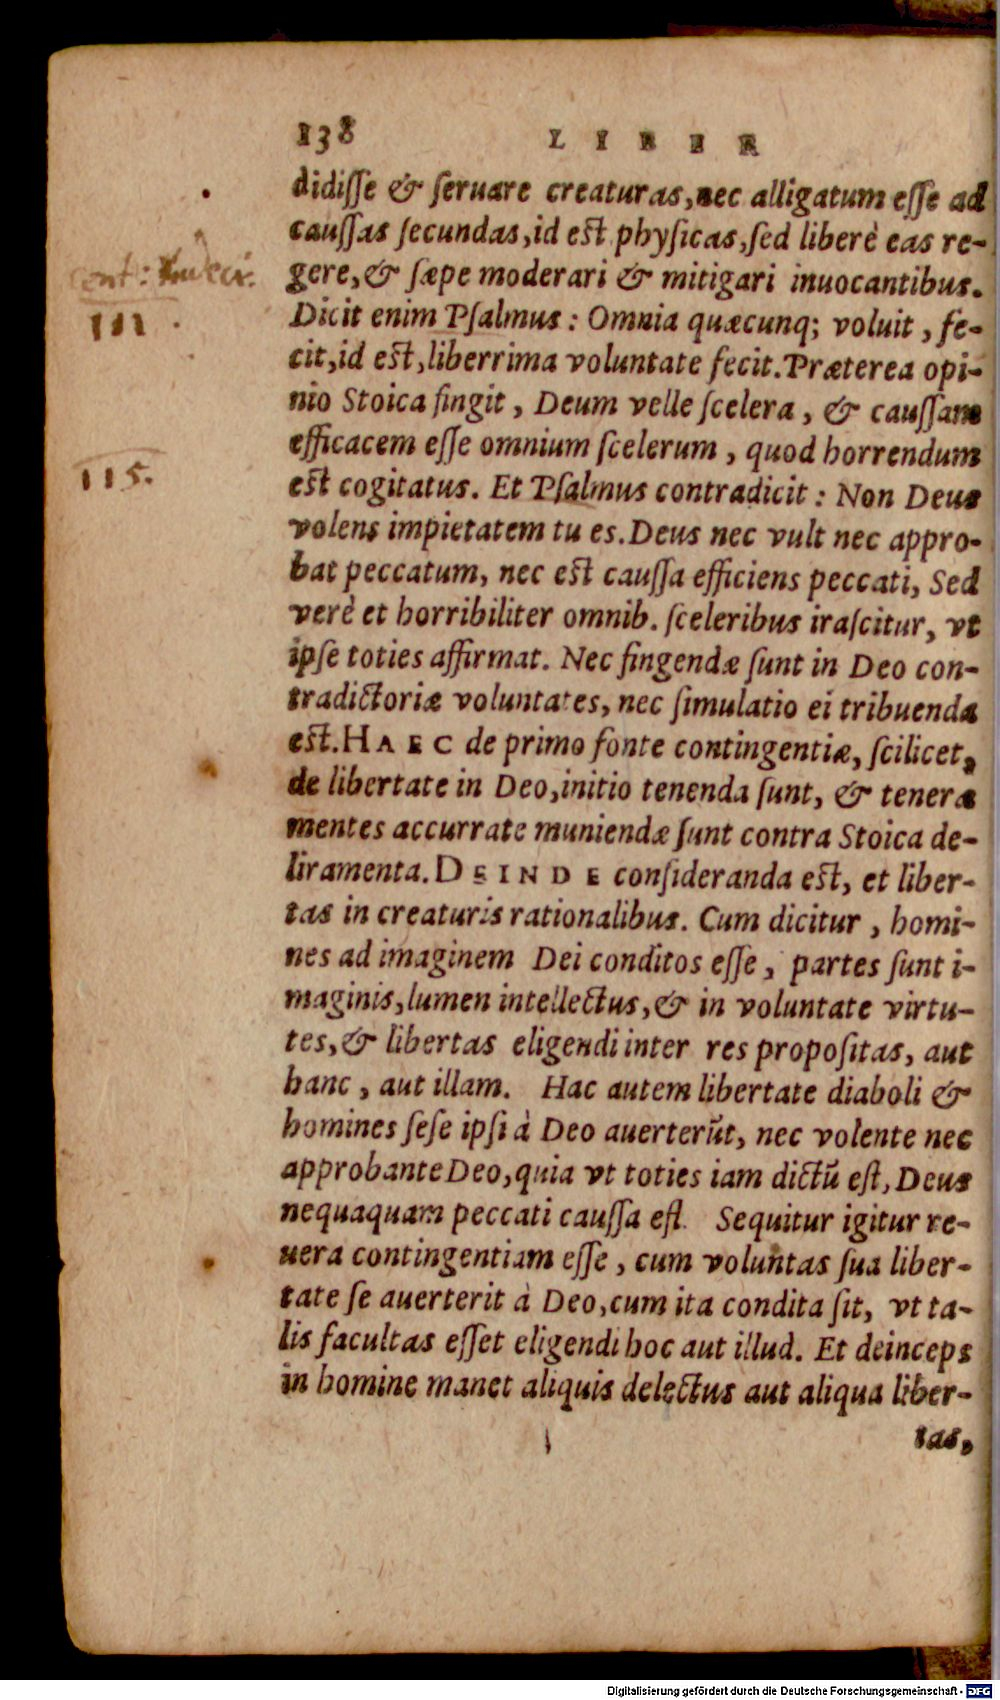 138 LIBER
didisse & seruare creaturas, nec alligatum esse ad
caussas secundas, id est physicas, sed liberè eas re-
gere, & sæpe moderari & mitigari inuocantibus.
111.
Dicit enim Psalmus: Omnia quæcunq; voluit, fe-
cit, id est, liberrima voluntate fecit. Præterea opi-
nio Stoica fingit, Deum velle scelera, & caussam
efficacem esse omnium scelerum, quod horrendum
115.
est cogitatus. Et Psalmus contradicit: Non Deus
volens impietatem tu es. Deus nec vult nec appro-
bat peccatum, nec est caussa efficiens peccati, Sed
verè et horribiliter omnib. sceleribus irascitur, vt
ipse toties affirmat. Nec fingendæ sunt in Deo con-
tradictoriæ voluntates, nec simulatio ei tribuenda
est. HAEC de primo fonte contingentiæ, scilicet,
de libertate in Deo, initio tenenda sunt, & teneræ
mentes accurrate muniendæ sunt contra Stoica de-
liramenta. DEINDE consideranda est, et liber-
tas in creaturis rationalibus. Cum dicitur, homi-
nes ad imaginem Dei conditos esse, partes sunt i-
maginis, lumen intellectus, & in voluntate virtu-
tes, & libertas eligendi inter res propositas, aut
hanc, aut illam. Hac autem libertate diaboli &
homines sese ipsi à Deo auerterũt, nec volente nec
approbante Deo, quia vt toties iam dictũ est, Deus
nequaquam peccati caussa est. Sequitur igitur re-
uera contingentiam esse, cum voluntas sua liber-
tate se auerterit à Deo, cum ita condita sit, vt ta-
lis facultas esset eligendi hoc aut illud. Et deinceps
in homine manet aliquis delectus aut aliqua liber-
tas,
Digitalisierung gefördert durch die Deutsche Forschungsgemeinschaft - DFG